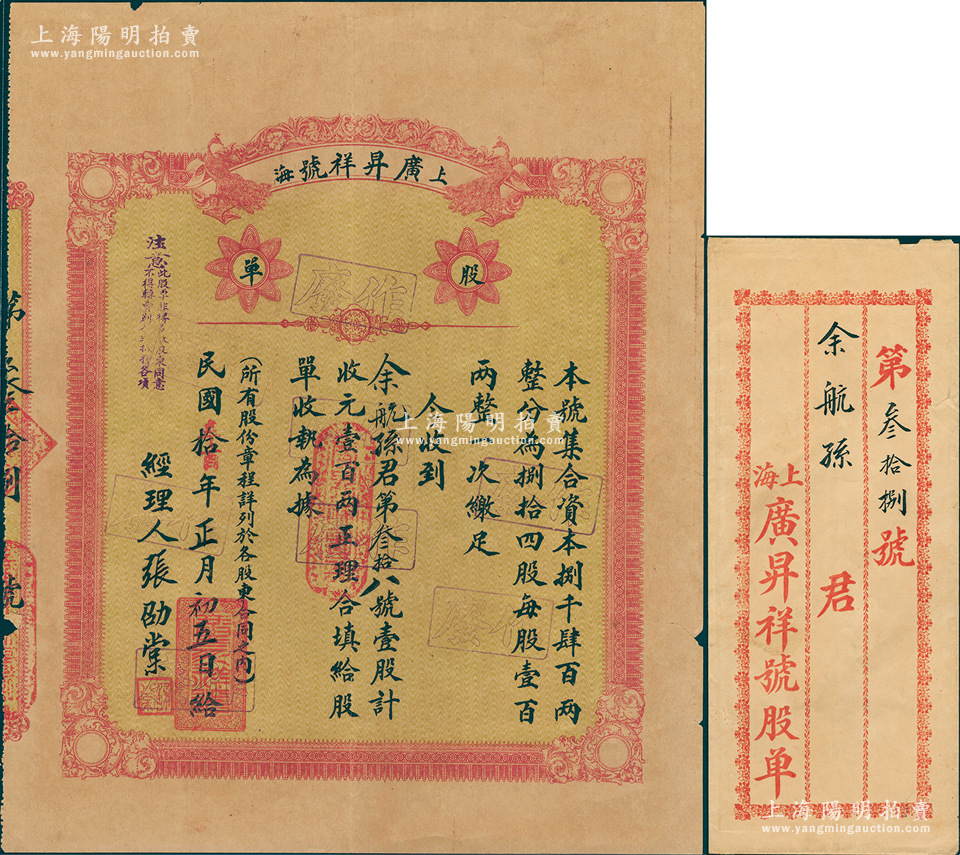 上海陽明拍賣
www.yangmingauction.com
上海廣昇祥號
股單
本號集合資本捌千肆百兩
整分為捌拾四股每股壹百
兩整一次繳足
今收到
余航孫君第叁拾八號壹股計
收元壹百兩正理合填給股
單收執為據
(所有股份章程詳列於各股東合同之內)
民國拾年正月初五日給
經理人張劭棠
注意此股單非得
股東同意
不得轉賣
各項
作廢
作廢
作廢
第
拾捌
號
上海陽明拍賣
www.yangmingauction.com
第叁拾捌號
余航孫君
上海廣昇祥號股单
上海陽明拍賣
www.yangmingauction.com